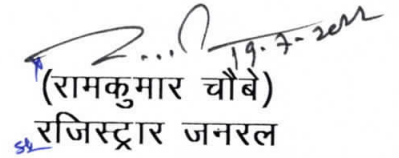 19-7-2022
(रामकुमार चौबे)
रजिस्ट्रार जनरल